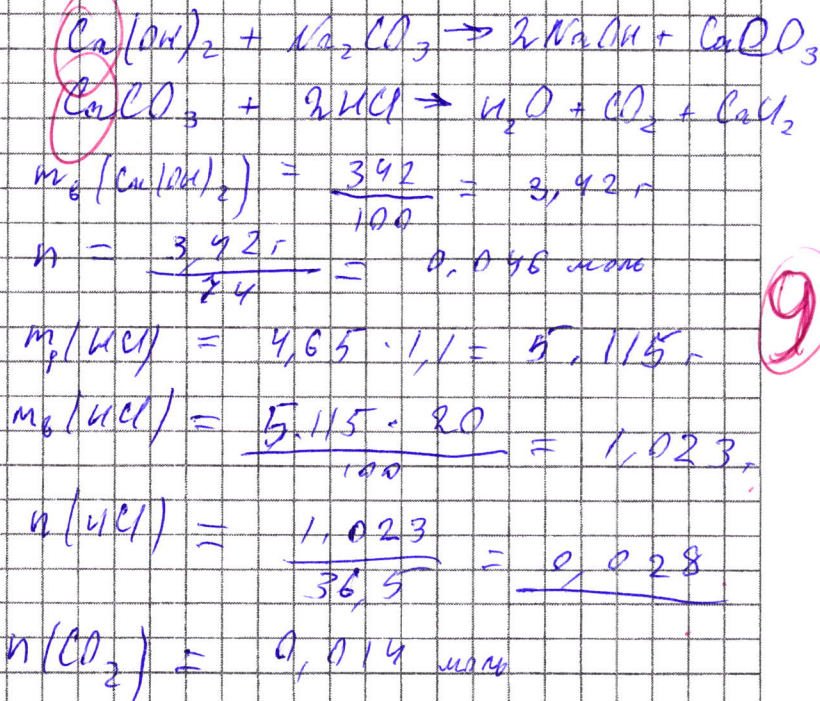 Ca(OH)₂ + Na₂CO₃ → 2NaOH + CaCO₃
CaCO₃ + 2HCl → H₂O + CO₂ + CaCl₂
mв(Ca(OH)₂) = 342/100 = 3,42 г
n = 3,42 г/74 = 0,046 моль
9
mр(HCl) = 4,65 · 1,1 = 5,115 г
mв(HCl) = 5.115 · 20/100 = 1,023 г
n(HCl) = 1,023/36,5 = 0,028
n(CO₂) = 0,014 моль